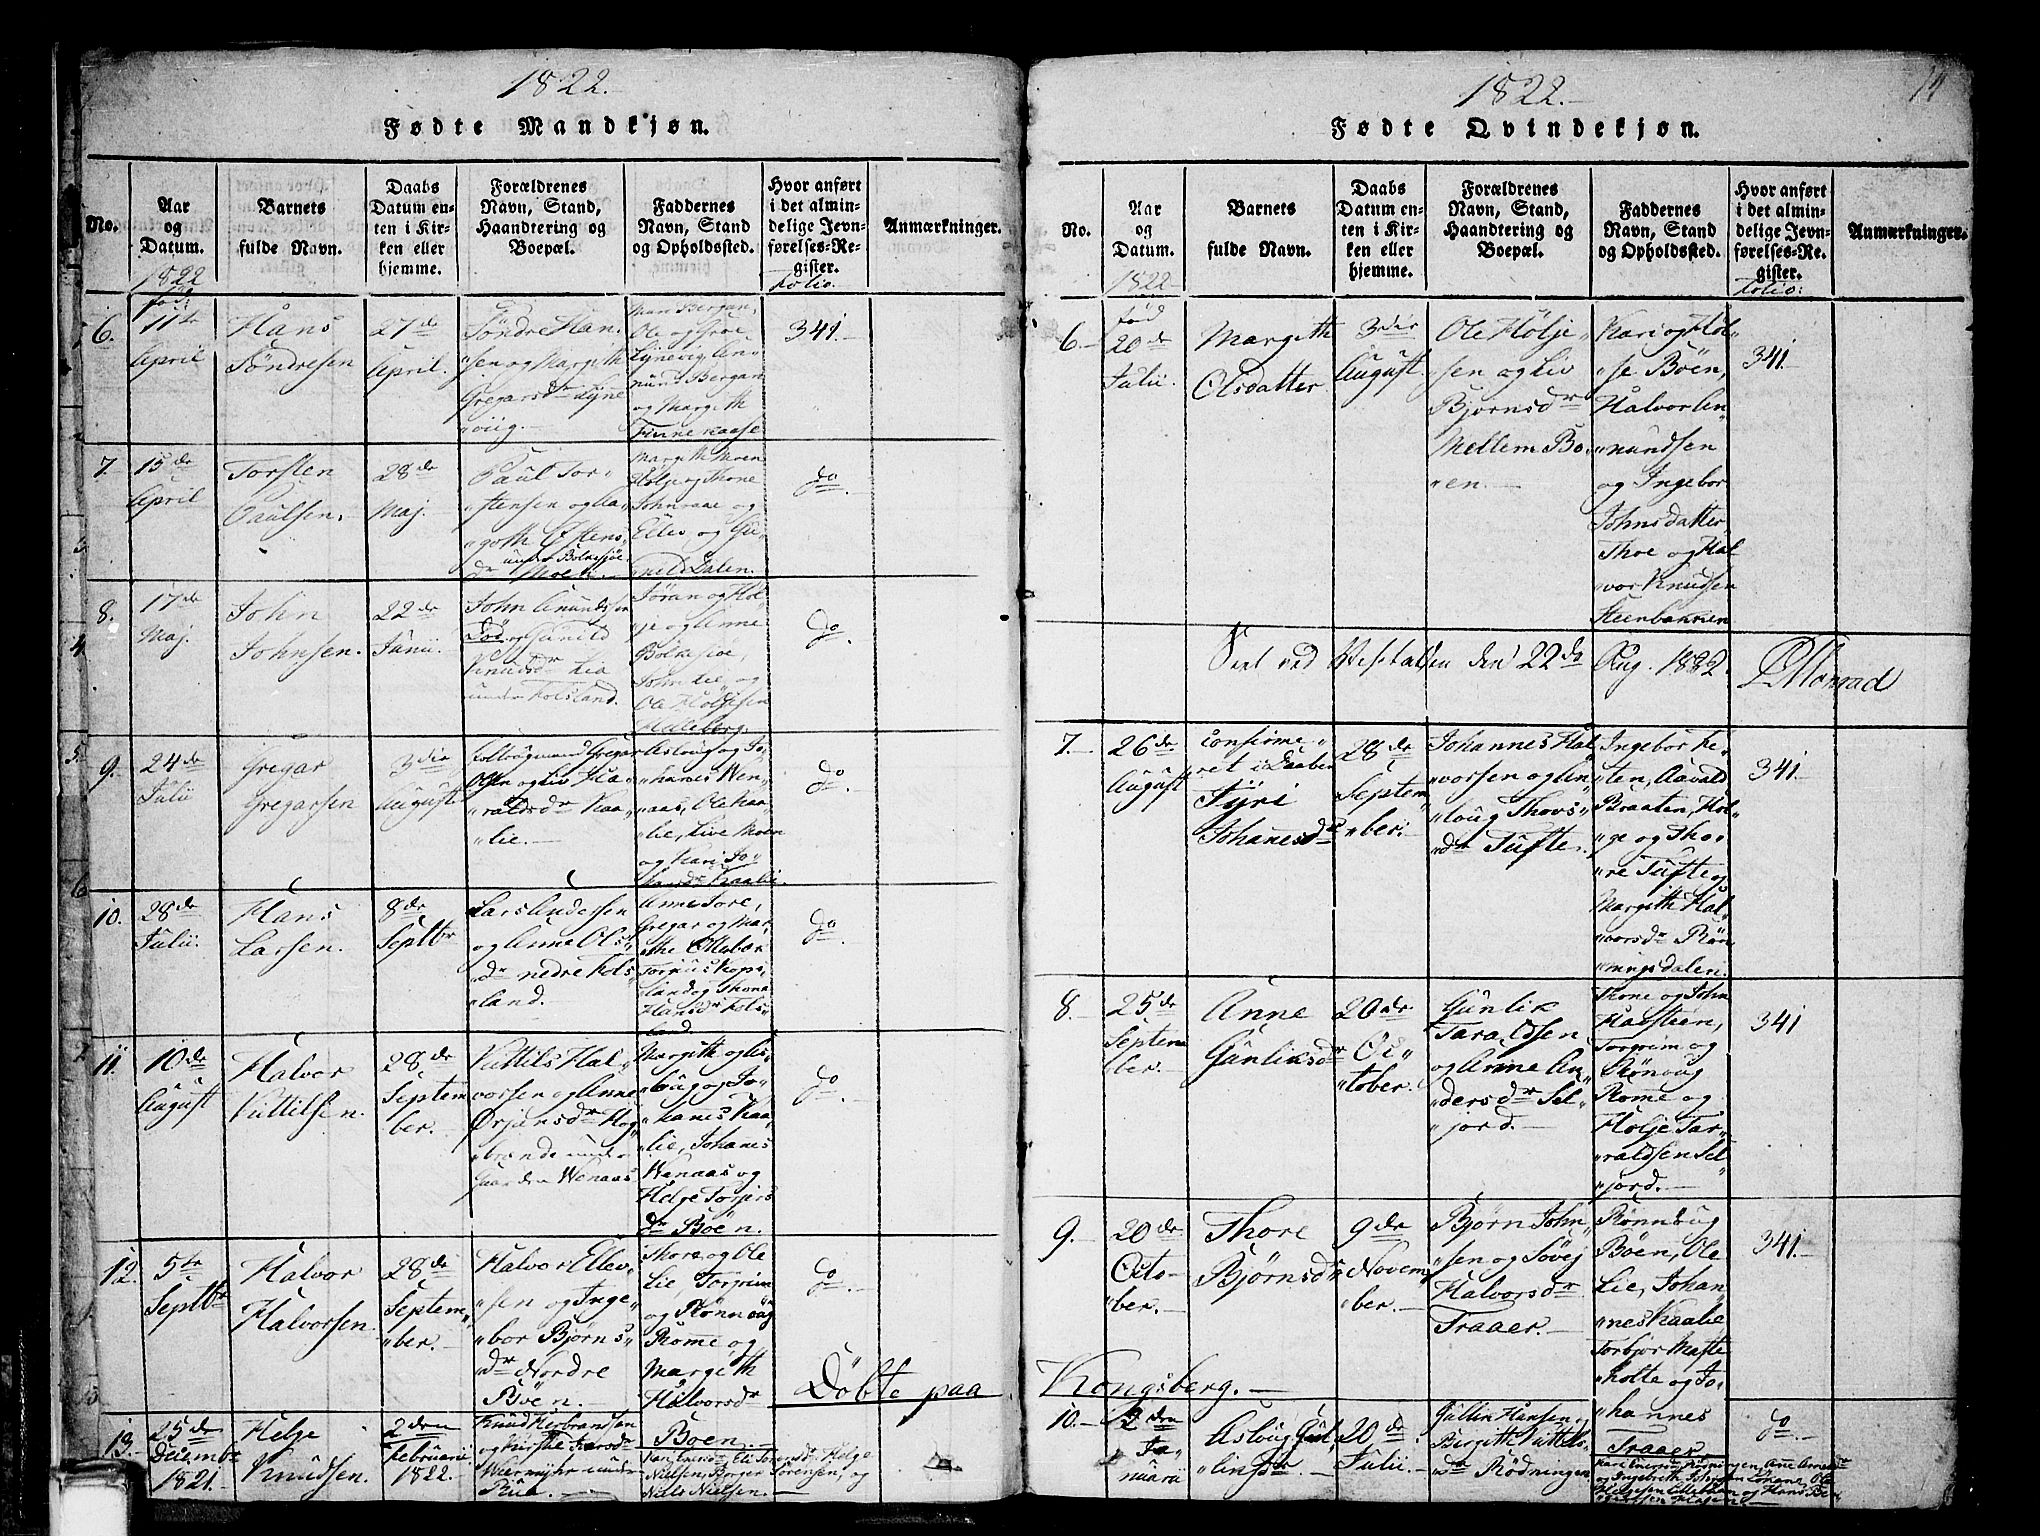 1822.
Fødte Mandkjøn.
No.
Aar
og
Datum.
Barnets
fulde Navn.
Daabs
Datum en-
ten i Kir-
ken eller
hjemme.
Forældrenes
Navn, Stand,
Haandtering og
Boepæl.
Faddernes
Navn, Stand
og Opholdssted.
Hvor anført
i det almin-
delige Jevn-
førelses-Re-
gister.
Anmærkninger.
1822
folio.
6.
11te
April
Hans
Søndresen
27de
April.
Søndre Han-
sen og Margith
Gregarsdr Lyne
"vig.
Ole og
Lynevig
Bergan
og Margith
341.
7.
15de
April
Torsten
Paulsen.
28de
Maj.
Paul Tor-
"stensen og
under Bolkesjøe
Margith Moen
og Thone
Ellev og
Dalen.
do.
8.
17de
Maj.
John
Johnsen.
22de
Junii.
John Anundsen
Død og Gunild
Knudsdr Lia
under Folsland.
Jøran og Hol-
je og Anne
Bolkesjøe,
John Lie, og
Ole Holjesen
do.
9.
24de
Julii
Gregar
Gregarsen
3die
August
Gregar
Olsen og Liv Ha-
"raldsdr Kaa-
"lie.
Asloug og Jo-
"hanes Wen-
"aas, Ole Kaa-
lie, Live Moen
og Kari Jo-
"hansdr Kaalie.
do.
10.
28de
Julii.
Hans
Larsen.
8de
Septbr
Lars Andersen
og Anne Ols-
dr nedre Fols
"land.
Anne Tore,
Gregar og Mar-
"the
land og Thone
Hansdr Fols-
land.
do.
11.
10de
August
Halvor
Kittilsen.
28de
Septem
ber.
Kittils Hal-
vorsen og Anne
Ørjansdr Hog
"brende under
Gaarden Wenaas
Margith og As-
"loug og Jo-
"hanes Kaa-
"lie, Johanes
Wenaas og
Helge Torjers
dr Boen.
do.
12.
5te
Septbr
Halvor
Halvorsen.
28de
Septem-
"ber.
Halvor Ellev-
"sen og Inge-
"bor Bjørns-
"dr Nordre
Boen.
Thore og Ole
Lie, Torgrim
og Rønnoug
Rome og
Margith
Halvorsdr
Boen.
do.
Döbte paa
13.
25de
Decembr
1821.
Helge
Knudsen.
2den
Februarii
1822.
Knud Herbrandsen
og Kirstie
under
Rua.
Helge
Nielsen, Borger Torensen, og
Niels Nielsen.
1822.
14
Fødte Qvindekjøn.
No.
Aar
og
Datum.
Barnets
fulde Navn.
Daabs
Datum en-
ten i Kir-
ken eller
hjemme.
Forældrenes
Navn, Stand,
Haandtering og
Boepæl.
Faddernes
Navn, Stand
og Opholdssted.
Hvor anført
i det almin-
delige Jevn-
førelses-Re-
gister.
Anmærkninger.
1822
folio:
6.
fød
20de
Julii.
Margith
Olsdatter
3die
August
Ole Holje-
"sen og Liv
Bjørnsdr
Mellem Bo-
"en.
Kari og Hol-
"je Böen,
Halvor An-
"nundsen
og Ingebor
Johnsdatter
Thoe og Hal
"vor Knudsen
Steenbakken
341.
Seet ved Visitatsen den 22de Aug. 1822. Monrad
7.
26de
August
Confirme-
ret i Daaben
Tyri
Johanesdr
28de
Septem
"ber.
Johannes Hal
"vorsen og An-
"loug Thovs-
"dr Tufte.
Ingebor
Aavald
Braaten, Hol-
"ge og Tho-
re Tufte og
Margith Hal-
"vorsdr Røn-
"ningsdalen.
341.
8.
25de
Septem
ber.
Anne
Gunliksdr
20de
Oc-
"tober.
Gunlik
Taraldsen
og Anne An-
"dersdr Sel-
"jord.
Thone og John
Haasteen,
Torgrim og
Rønnoug
Rome og
Holje Tar-
"raldsen Sel-
"jord.
341
9.
20de
Octo-
"ber.
Thore
Bjørnsdr
9de
Novem
"ber.
Bjørn John-
"sen og Sövej
Halvorsdr
Traaer.
Rønnoug
Böen, Ole
Lie, Johan-
"nes Kaalie
Torbjør Maste
"holte og Jo-
"hannes
Traaer.
341.
Kongsberg.
10.
2den
Ja-
nuarii
Aslaug Gul-
"lingsdr.
20de
Julii.
Gullik Hansen og
Bergitte Kittels-
"dr Rödningen
do.